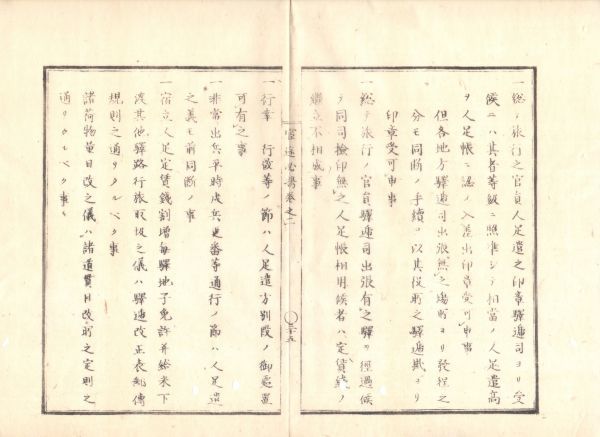 一総テ旅行之官員人足遣之印章驛逓司ヨリ受
候ニハ其者等級ニ照準シテ相當ノ人足遣高
ヲ人足帳ニ認メ入差出印章受可申事
但各地方驛逓司出張無之場所ヨリ發程之
分モ同断ノ手續ヲ以其役所之驛逓掛ヨリ
印章受可申事
一総テ旅行ノ官員驛逓司出張有之驛ヲ徑過候
テ同司撿印無之人足帳相用候者ハ定賃銭ノ
繼立不相成事
一行幸 行啓等ノ節ハ人足遣方別段ノ御處置
可有之事
一非常出兵平時戍兵更番等通行ノ節ハ人足遣
之義モ前同断ノ事
一宿立人足定賃銭割増毎驛地子免許并給米下
渡其他驛路行旅取扱之儀ハ驛逓改正表郵傳
規則之通リタルベク事
諸荷物量目改之儀ハ諸道貫目改所之定則之
通リタルベク事